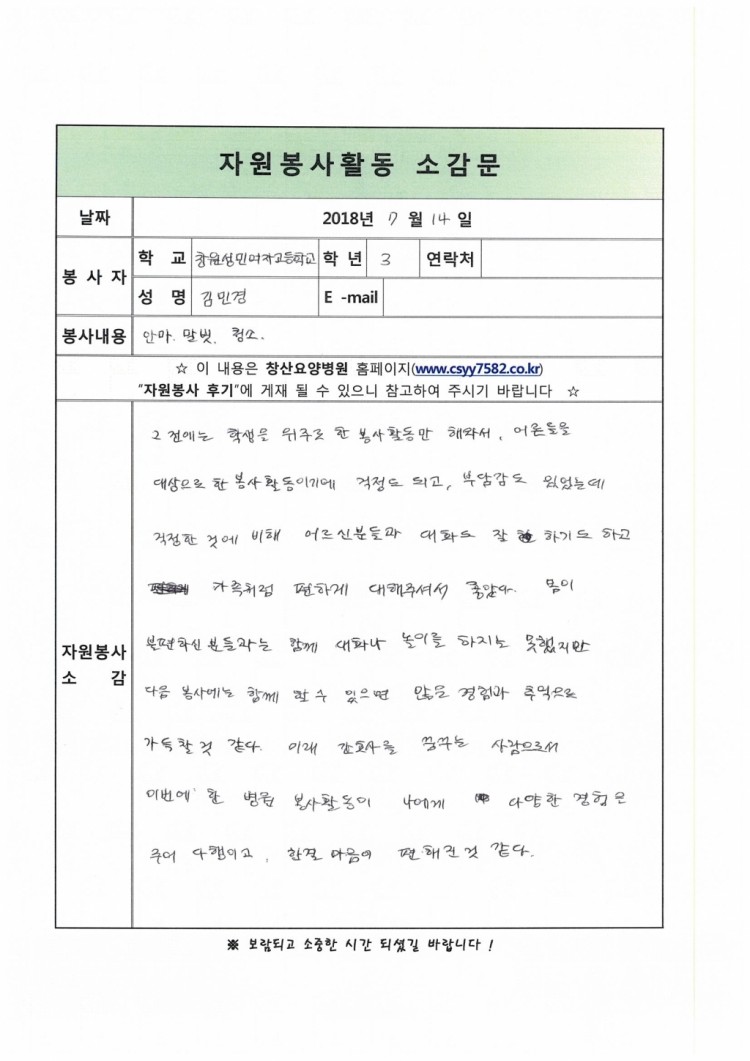 자원봉사활동 소감문
날짜 2018년 7 월 14 일
봉 사 자
학 교 창원성민여자고등학교 학 년 3 연락처
성 명 김민경 E -mail
봉사내용 안마. 말벗. 청소.
☆ 이 내용은 창산요양병원 홈페이지(www.csyy7582.co.kr)
"자원봉사 후기"에 게재 될 수 있으니 참고하여 주시기 바랍니다 ☆
전에는 학생을 위주로 한 봉사활동만 해와서, 어른들을
대상으로 한 봉사활동이기에 걱정도 되고, 부담감도 있었는데
걱정한 것에 비해 어르신분들과 대화도 잘 하기도 하고
가족처럼 편하게 대해주셔서 좋았다. 몸이
불편하신 분들과는 함께 대화나 놀이를 하지는 못했지만
자원봉사
소 감
다음 봉사에는 함께 할 수 있으면 많은 경험과 추억으로
가득할것 같다. 미래 간호사를 꿈꾸는 사람으로서
이번에 한 병원 봉사활동이 나에게 다양한 경험을
주어 다행이고, 한결 마음이 편해진것 같다.
※ 보람되고 소중한 시간 되셨길 바랍니다 !